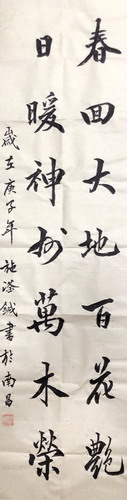 春回大地百花艷
日暖神州萬木榮
歲在庚子年 施滲鋮書於南昌